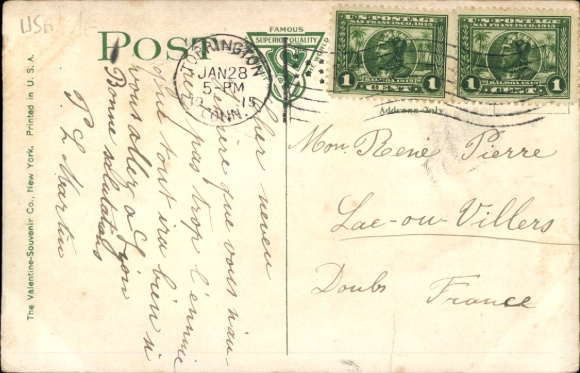 USA
POST
FAMOUS
SUPERIOR QUALITY
JAN 28
5-PM
1915
CONN.
U.S. POSTAGE
SAN FRANCISCO 1915
BALBOA 1513
1 CENT 1
U.S. POSTAGE
SAN FRANCISCO 1915
BALBOA 1513
1 CENT 1
Address Only
The Valentine-Souvenir Co., New York. Printed in U.S.A.
Cher neveu
J'espère que vous n'au-
rez pas trop l'ennuie
et que tout ira bien si
vous allez a Lyon
Bonne salutations
P L Martin
Mon. René Pierre
Lac-ou-Villers
Doubs France